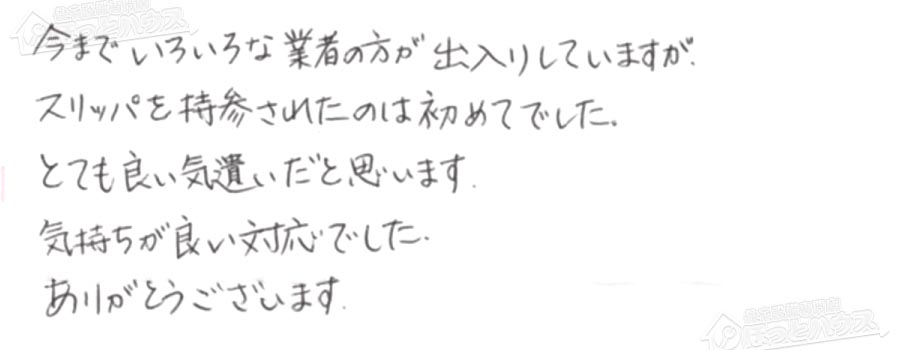 今までいろいろな業者の方が出入りしていますが、
スリッパを持参されたのは初めてでした。
とても良い気遣いだと思います。
気持ちが良い対応でした。
ありがとうございます。
ほっとハウス
ほっとハウス